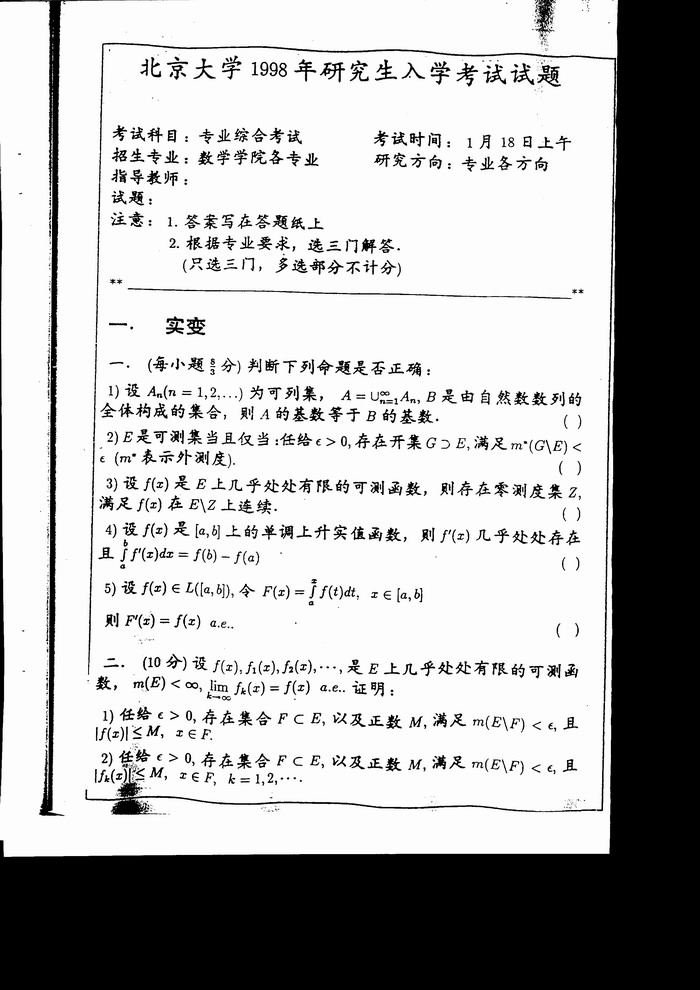 北京大学 1998 年研究生入学考试试题
考试科目：专业综合考试 考试时间：1 月 18 日上午
招生专业：数学学院各专业 研究方向：专业各方向
指导教师：
试题：
注意：1. 答案写在答题纸上
2. 根据专业要求，选三门解答.
(只选三门，多选部分不计分)
** **
一. 实变
一. (每小题 8/3 分) 判断下列命题是否正确：
1) 设 Aₙ(n = 1,2,...) 为可列集， A = ∪ₙ₌₁^∞ Aₙ, B 是由自然数数列的
全体构成的集合，则 A 的基数等于 B 的基数. ( )
2) E 是可测集当且仅当:任给 ε > 0, 存在开集 G ⊃ E, 满足 m*(G\E) <
ε (m* 表示外测度). ( )
3) 设 f(x) 是 E 上几乎处处有限的可测函数，则存在零测度集 Z,
满足 f(x) 在 E\Z 上连续. ( )
4) 设 f(x) 是 [a,b] 上的单调上升实值函数，则 f′(x) 几乎处处存在
且 ∫ₐᵇ f′(x)dx = f(b) − f(a) ( )
5) 设 f(x) ∈ L([a,b]), 令 F(x) = ∫ₐˣ f(t)dt, x ∈ [a,b]
则 F′(x) = f(x) a.e.. ( )
二. (10 分) 设 f(x), f₁(x), f₂(x), ⋯, 是 E 上几乎处处有限的可测函
数， m(E) < ∞, lim_{k→∞} fₖ(x) = f(x) a.e.. 证明：
1) 任给 ε > 0, 存在集合 F ⊂ E, 以及正数 M, 满足 m(E\F) < ε, 且
|f(x)| ≤ M, x ∈ F.
2) 任给 ε > 0, 存在集合 F ⊂ E, 以及正数 M, 满足 m(E\F) < ε, 且
|fₖ(x)| ≤ M, x ∈ F, k = 1,2,⋯.